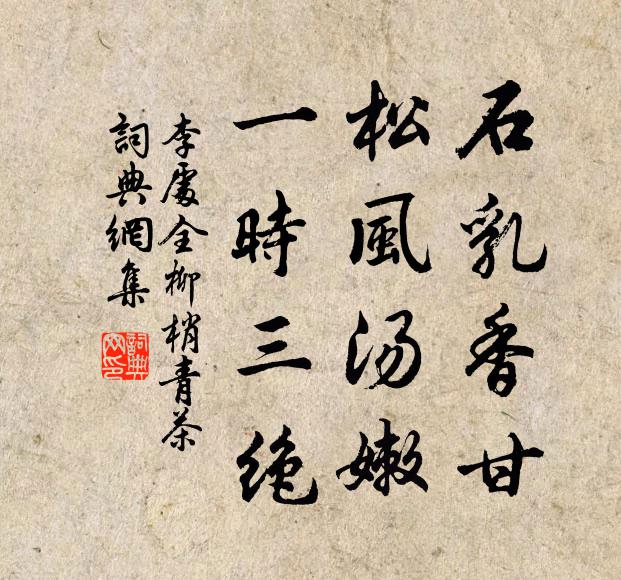 石乳香甘
松風汤嫩
一時三绝
李處全柳梢青茶
詞典網集
詞典
网印